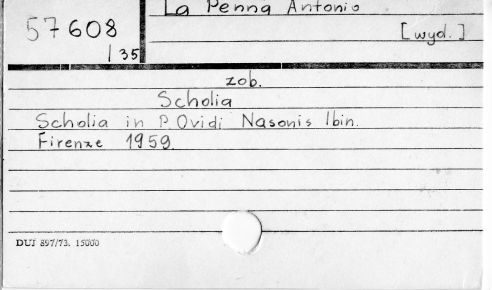 57608
135
La Penna Antonio
[wyd.]
zob.
Scholia
Scholia in P. Ovidi Nasonis Ibin.
Firenze 1959
DUJ 897/73. 15000